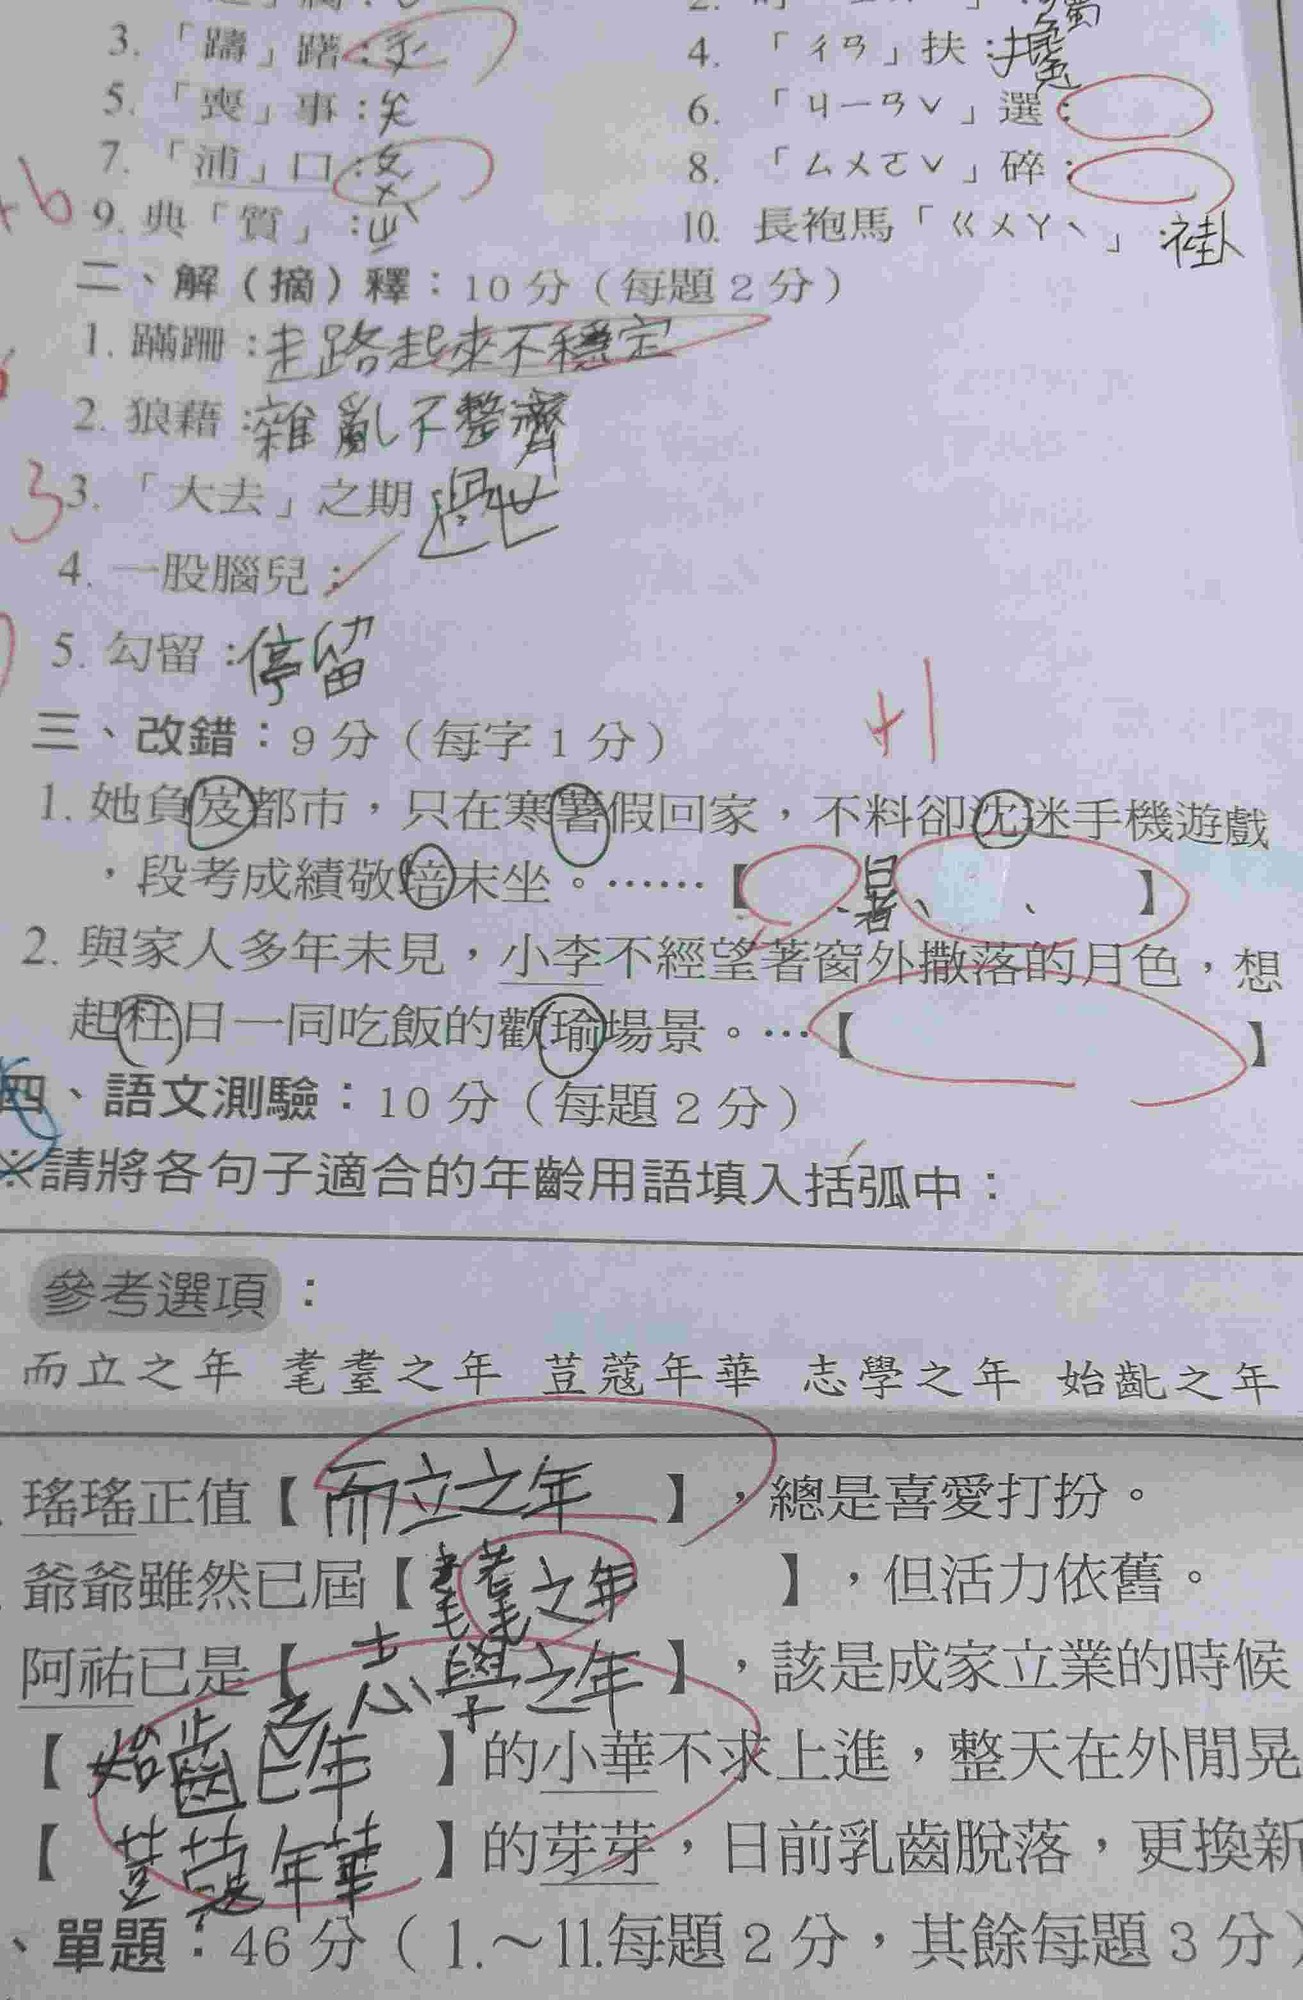 3. 「躊」躇:
4. 「ㄔㄢ」扶:攙
5. 「喪」事:ㄤ
6. 「ㄐㄧㄢˇ」選:
7. 「浦」口:
8. 「ㄙㄨㄛˇ」碎:
+6
9. 典「質」:ㄓˋ
10. 長袍馬「ㄍㄨㄚˋ」:褂
二、解(摘)釋:10分(每題2分)
1. 蹣跚:走路起來不穩定
2. 狼藉:雜亂不整齊
3
3. 「大去」之期 過世
4. 一股腦兒:
5. 勾留:停留
+1
三、改錯:9分(每字1分)
1. 她負笈都市,只在寒薯假回家,不料卻沈迷手機遊戲
,段考成績敬培末坐。……【 、暑、 、 】
2. 與家人多年未見,小李不經望著窗外撒落的月色,想
起枉日一同吃飯的歡瑜場景。…【 】
四、語文測驗:10分(每題2分)
※請將各句子適合的年齡用語填入括弧中:
參考選項:
而立之年 耄耋之年 荳蔻年華 志學之年 始齔之年
瑤瑤正值【而立之年】,總是喜愛打扮。
爺爺雖然已屆【耄耋之年】,但活力依舊。
阿祐已是【志學之年】,該是成家立業的時候
【始齔之年】的小華不求上進,整天在外閒晃
【荳蔻年華】的芽芽,日前乳齒脫落,更換新
、單題:46分(1.~11.每題2分,其餘每題3分)